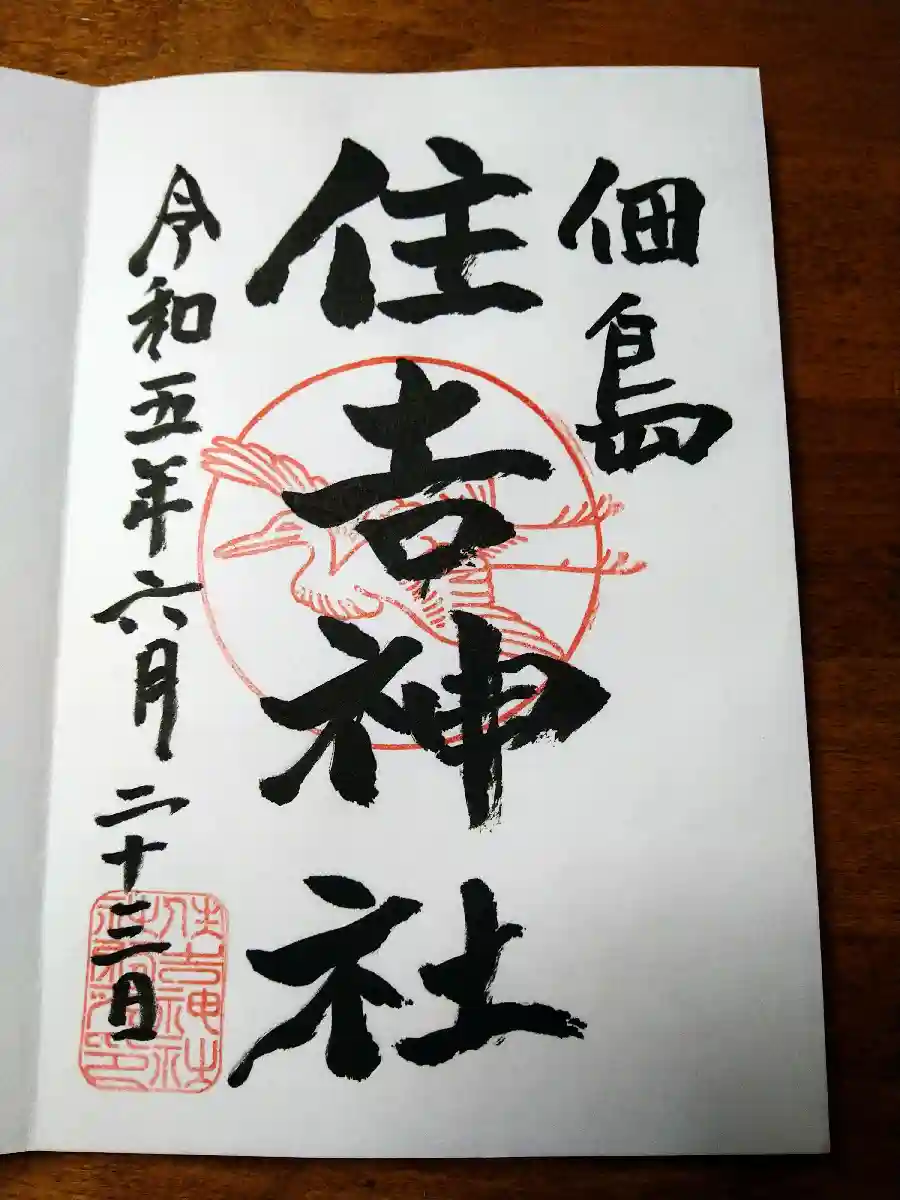 佃島
住吉神社
令和五年六月二十三日
住吉神社